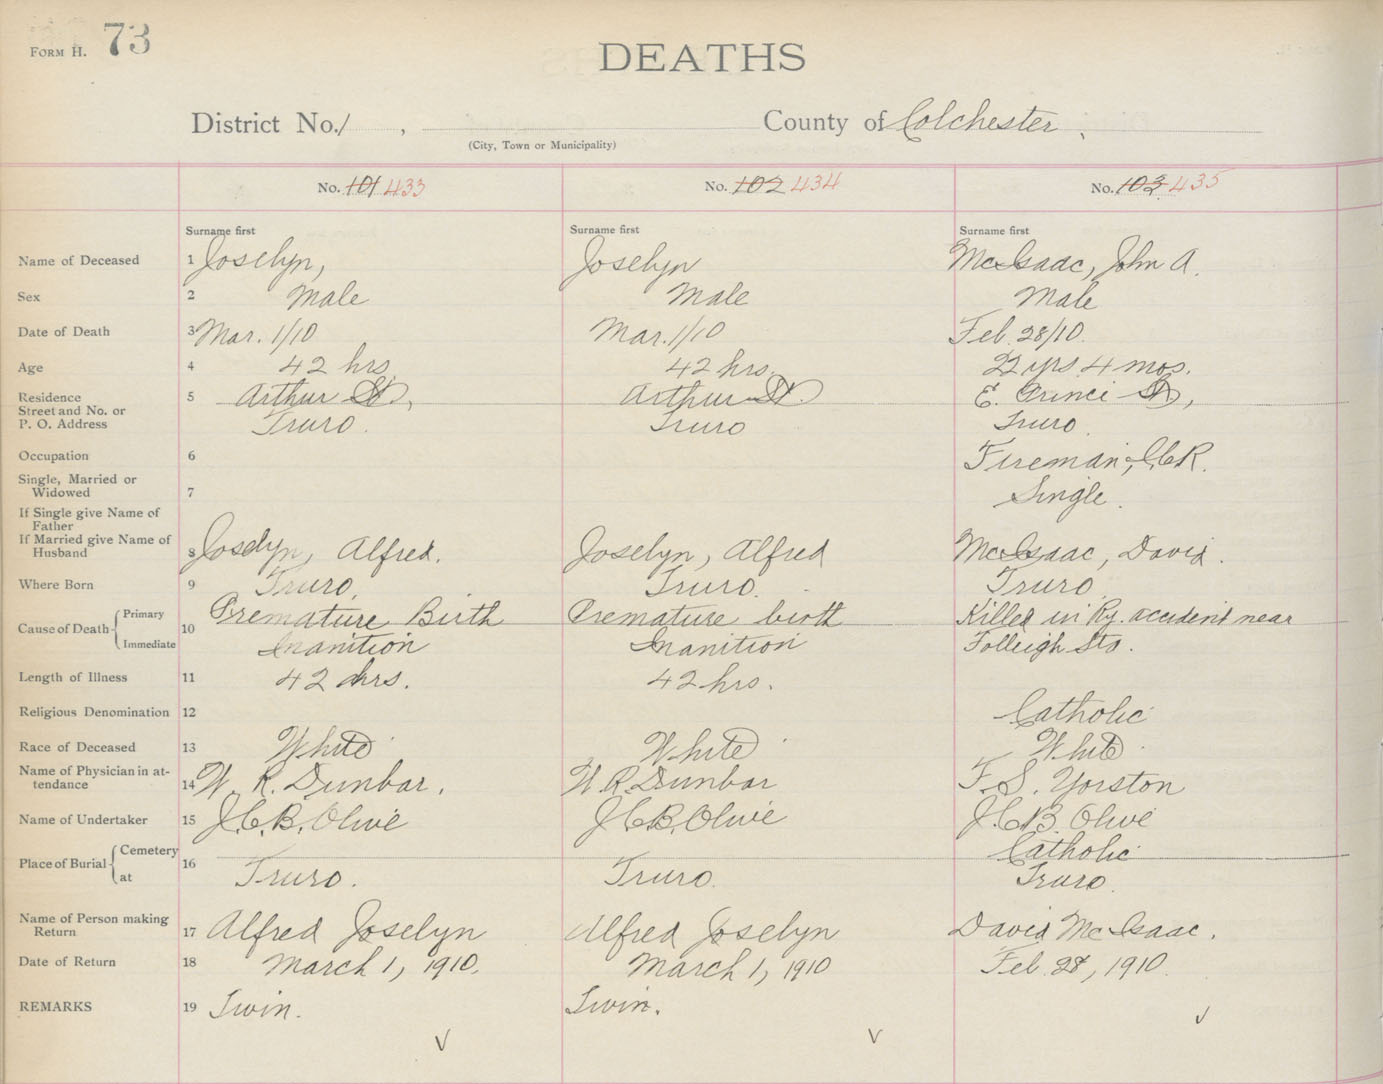 FORM H. 73
DEATHS
District No. 1, County of Colchester,
(City, Town or Municipality)
No. 101 433 No. 102 434 No. 103 435
Surname first Surname first Surname first
Name of Deceased 1 Joselyn, Joselyn McIsaac, John A.
Sex 2 Male Male Male
Date of Death 3 Mar. 1/10 Mar. 1/10 Feb. 28/10.
Age 4 42 hrs. 42 hrs. 22 yrs 4 mos.
Residence 5 Arthur St., Arthur St. E. Prince St.,
Street and No. or
P. O. Address Truro. Truro Truro
Occupation 6 Fireman, I.C.R.
Single, Married or
Widowed 7 Single.
If Single give Name of
Father
If Married give Name of
Husband 8 Joselyn, Alfred. Joselyn, Alfred McIsaac, David.
Where Born 9 Truro. Truro. Truro
Cause of Death Primary 10 Premature Birth Premature birth Killed in Ry. accident near
Immediate Inanition Inanition Folleigh Sta.
Length of Illness 11 42 hrs. 42 hrs.
Religious Denomination 12 Catholic
Race of Deceased 13 White White White
Name of Physician in at-
tendance 14 W. R. Dunbar. W. R. Dunbar F. S. Yorston
Name of Undertaker 15 J.C.B. Olive J.C.B. Olive J.C.B. Olive
Place of Burial Cemetery 16 Catholic
at Truro. Truro. Truro.
Name of Person making
Return 17 Alfred Joselyn Alfred Joselyn David McIsaac.
Date of Return 18 March 1, 1910. March 1, 1910 Feb. 28, 1910.
REMARKS 19 Twin. Twin.